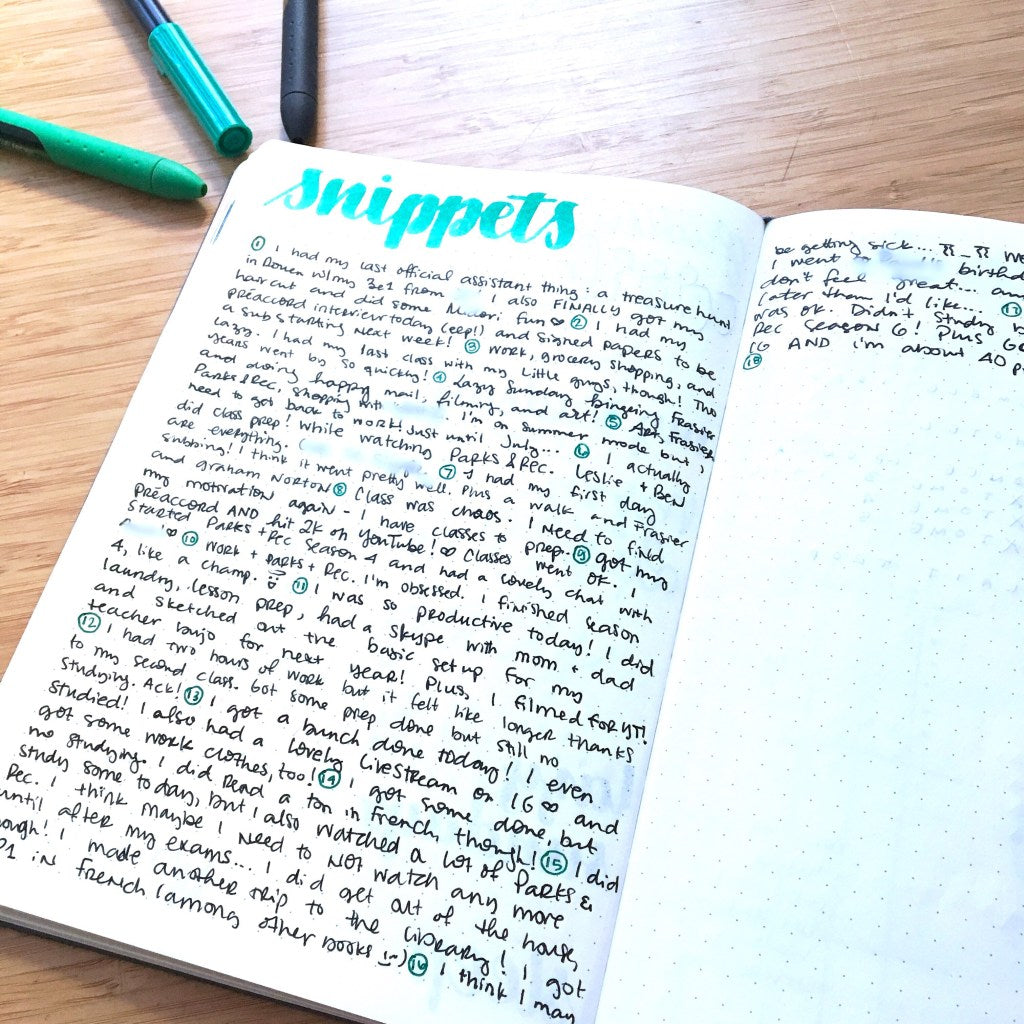 snippets
① I had my last official assistant thing: a treasure hunt
in Rouen w/my 3e1 from I also FINALLY got my
haircut and did some fun ♡ ② I had my
préaccord interview today (eep!) and signed papers to be
a sub starting next week! ③ Work, grocery shopping, and
lazy. I had my last class with my little guys, though! This
years went by so quickly! ④ Lazy Sunday bingeing Frasier
and doing happy mail, filming, and art! ⑤ Art, Frasier,
Parks & Rec, shopping with I'm on summer mode but I
need to get back to work! Just until July... ⑥ I actually
did class prep! While watching Parks & Rec. Leslie + Ben
are everything. ( ⑦ I had my first day
subbing! I think it went pretty well. Plus a walk and Frasier
and Graham Norton ⑧ Class was chaos. I need to find
my motivation again - I have classes to prep. ⑨ Got my
préaccord AND hit 2K on YouTube! ∞ Classes went ok. I
started Parks + Rec Season 4 and had a lovely chat with
♡ ⑩ Work + Parks + Rec. I'm obsessed. I finished season
4, like a champ. ⑪ I was so productive today! I did
laundry, lesson prep, had a skype with mom + dad
and sketched out the basic setup for my
teacher bujo for next year! Plus, I filmed for YT!
⑫ I had two hours of work but it felt like longer thanks
to my second class. Got some prep done but still no
studying. Ack! ⑬ I got a bunch done today! I even
studied! I also had a lovely livestream on IG ∞ and
got some work clothes, too! ⑭ I got some done, but
no studying. I did read a ton in French, though! ⑮ I did
study some today, but I also watched a lot of Parks &
Rec. I think maybe I need to NOT watch any more
until after my exams... I did get out of the house,
though! I made another trip to the library! I got
in French (among other books :-) ⑯ I think I may
be getting sick... ㅠ_ㅠ
I went birthd
don't feel great...
later then I'd like... ⑰
was ok. Didn't study
Rec Season 6! Plus
IG AND I'm about 40
⑱